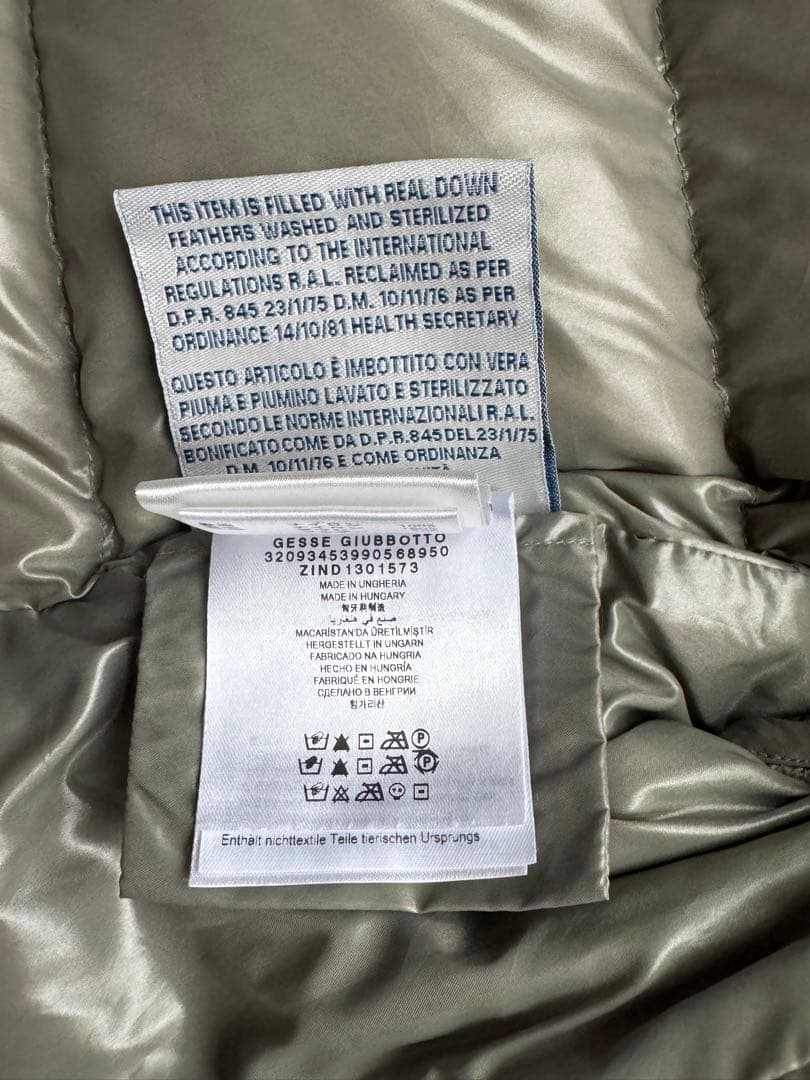 THIS ITEM IS FILLED WITH REAL DOWN
FEATHERS WASHED AND STERILIZED
ACCORDING TO THE INTERNATIONAL
REGULATIONS R.A.L. RECLAIMED AS PER
D.P.R. 845 23/1/75 D.M. 10/11/76 AS PER
ORDINANCE 14/10/81 HEALTH SECRETARY
QUESTO ARTICOLO È IMBOTTITO CON VERA
PIUMA E PIUMINO LAVATO E STERILIZZATO
SECONDO LE NORME INTERNAZIONALI R.A.L.
BONIFICATO COME DA D.P.R. 845 DEL 23/1/75
D.M. 10/11/76 E COME ORDINANZA
100%
GESSE GIUBBOTTO
32093453990568950
ZIND1301573
MADE IN UNGHERIA
MADE IN HUNGARY
匈牙利制造
صنع في هنغاريا
MACARİSTAN'DA ÜRETİLMİŞTİR
HERGESTELLT IN UNGARN
FABRICADO NA HUNGRIA
HECHO EN HUNGRÍA
FABRIQUÉ EN HONGRIE
СДЕЛАНО В ВЕНГРИИ
헝가리산
P
P
Enthält nichttextile Teile tierischen Ursprungs